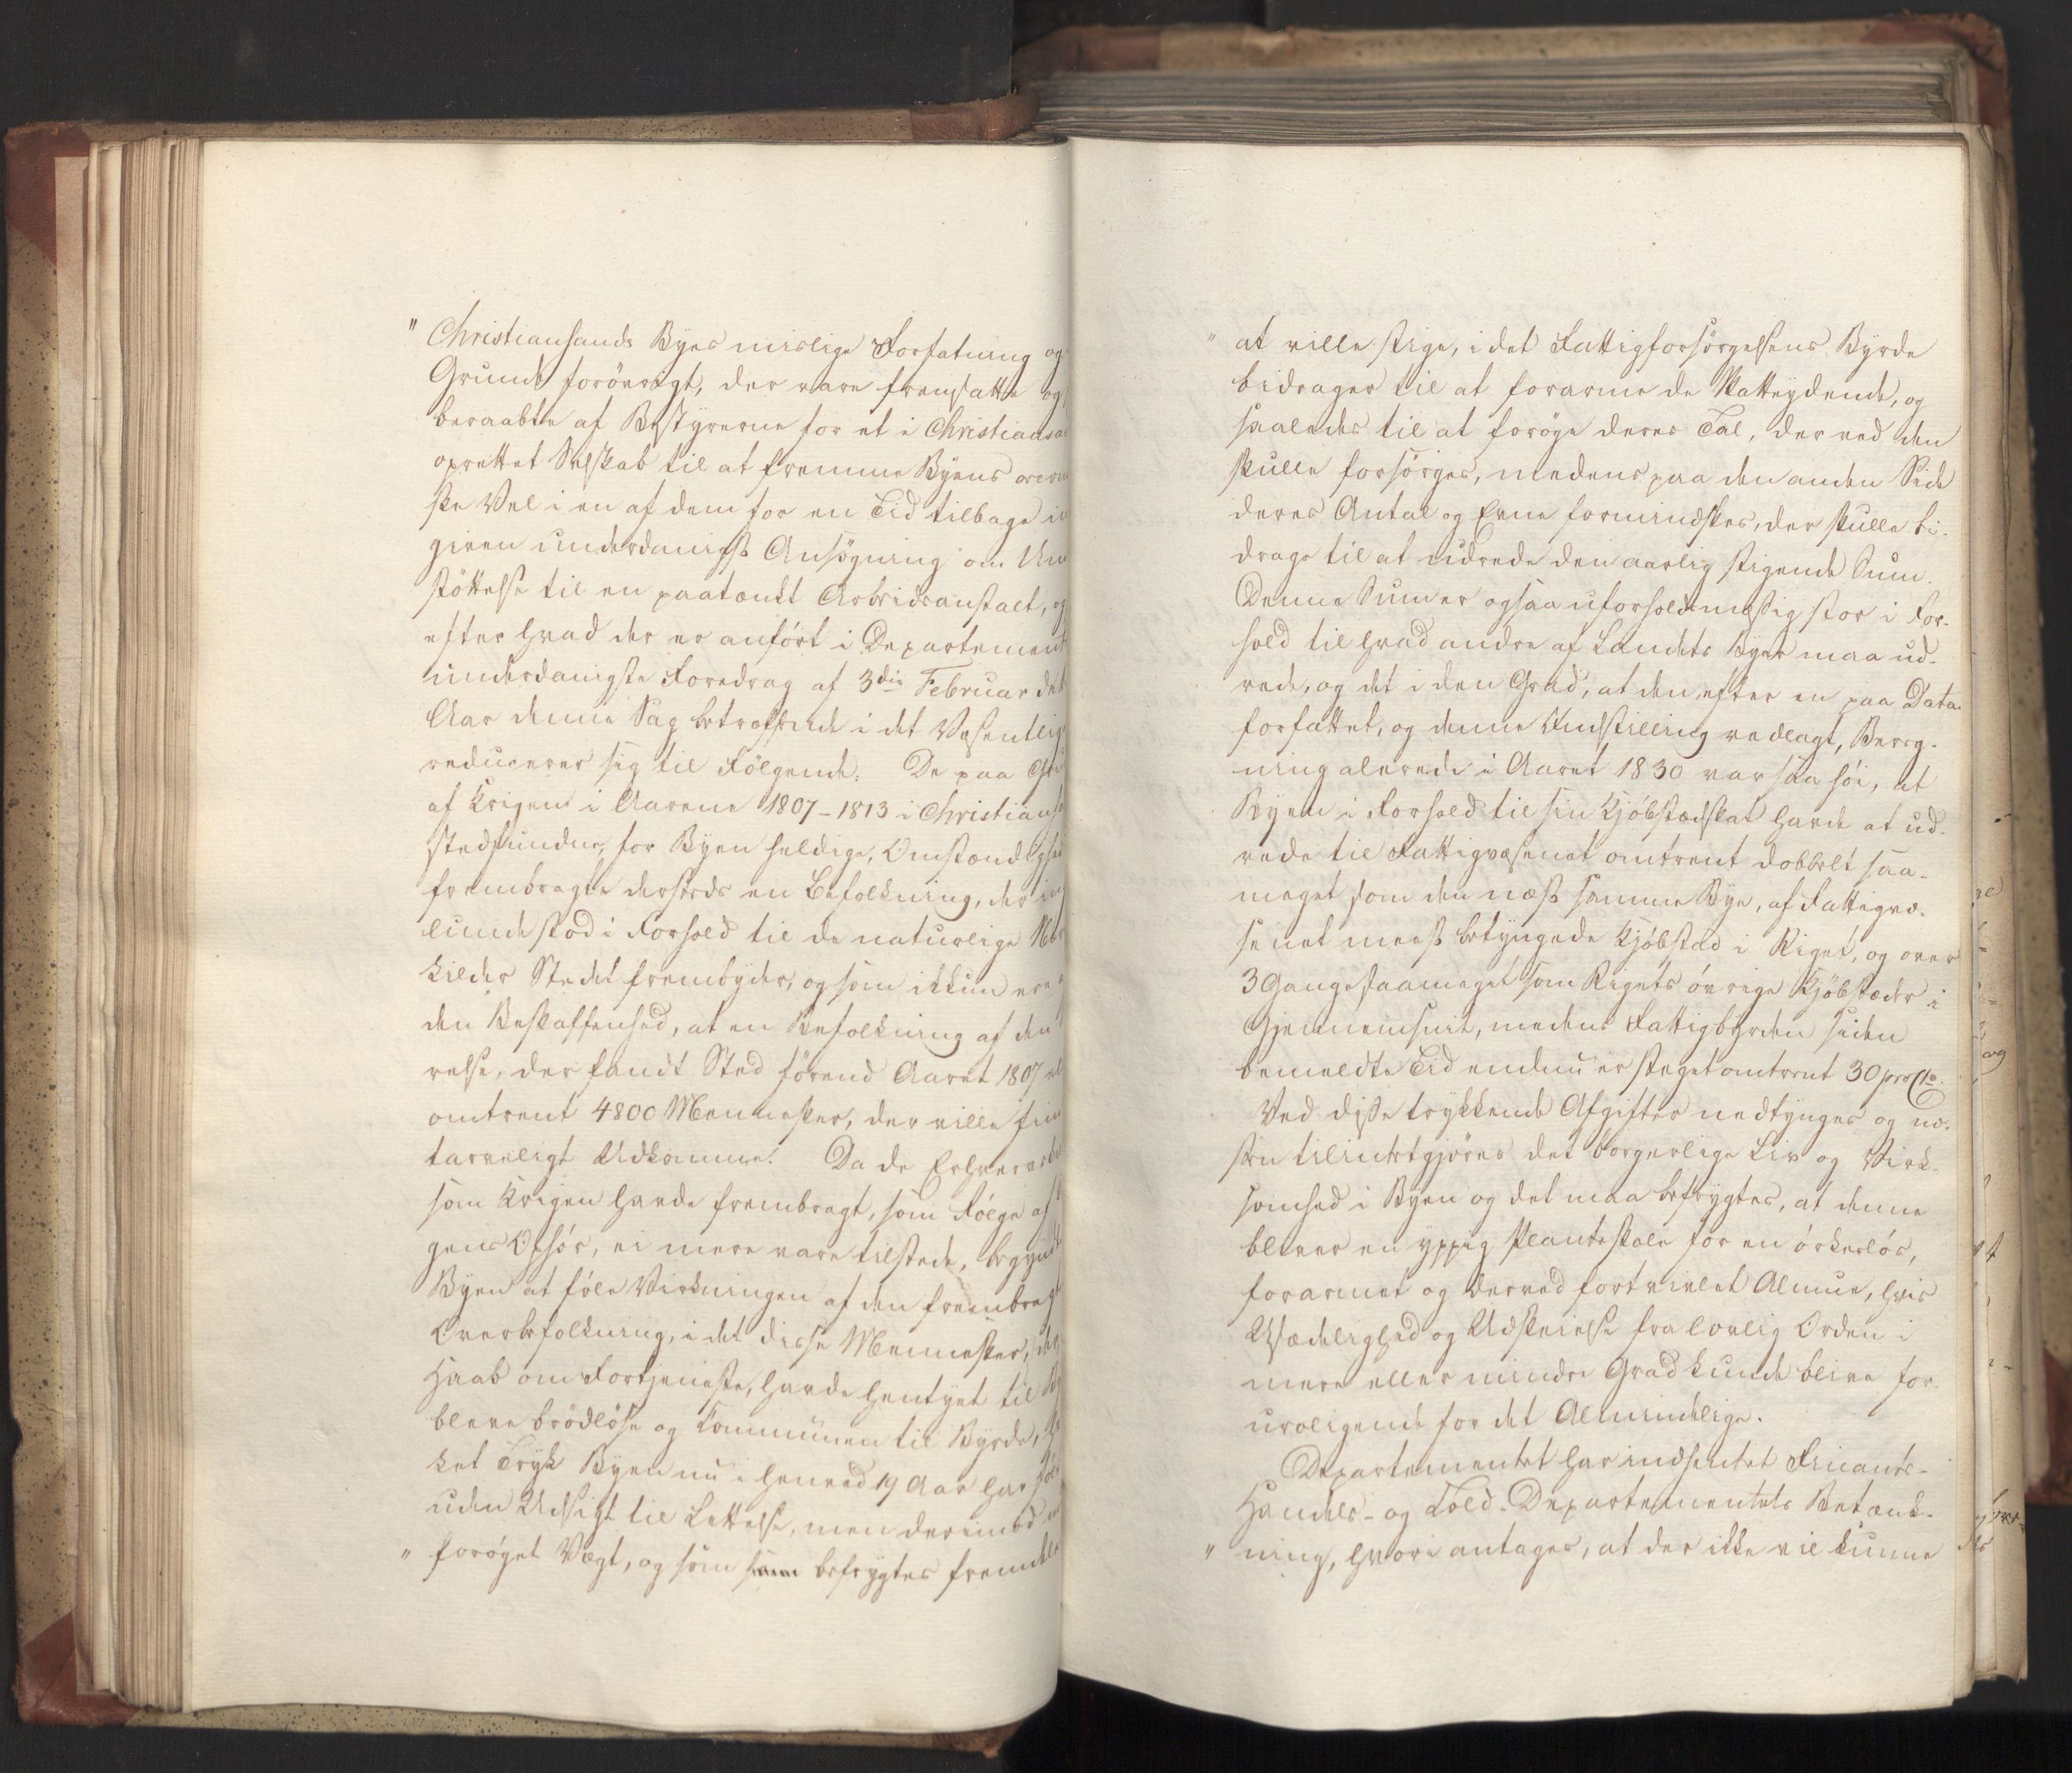 " Christiansands Byes mislige Forfatning og
Grunde forövrigt, der vare fremsatte og
beraabte af Bestyrerne for et i Christiansa
oprettet Selskab til at fremme Byens oecono
ske Vel i en af dem for en Tid tilbage in
given underdanigst Ansögning om Un
støttelse til en paatænkt Arbeidsanstalt, og
efter hvad der er anført i Departement
underdanigste Foredrag af 3die Februar det
Aar denne Sag betræffende i det Væsentlig
reducerer sig til Følgende: De paa Gr
af Krigen i Aarene 1807-1813 i Christians
stedfundne, for Byen heldige, Omstændighed
frembragte dersteds en Befolkning, der in
lunde stod i Forhold til de naturlige Nær
kilder Stedet frembyder, og som ikkun ere
den Beskaffenhed, at en Befolkning af den
relse, der fandt Sted førend Aaret 1807 el
omtrent 4800 Mennesker, der ville fin
tarveligt Udkomme. Da de Erhverv
som Krigen havde frembragt, som Følge af
gens Ophør, ei mere vare tilstede, begynd
Byen at føle Virkningen af den frembragt
Overbefolkning, i det disse Mennesker, der
Haab om Fortjeneste, havde hentyet til By
bleve brødløse og Communen til Byrde,
ket Tryk Byen nu i henved 19 Aar har føl
uden Udsigt til Lettelse, men derimod
" forøget Vægt, og som befrygtes fremdele
" at ville stige, i det Fattigforsørgelsens Byrde
bidrager til at forarme de Skatteydende, og
saaledes til at forøge deres Tal, der ved den
skulle forsørges, medens paa den anden Side
deres Antal og Evne formindskes, der skulle bi-
drage til at udrede den aarlig stigende Sum.
Denne Sum er ogsaa uforholdsmæssig stor i For-
hold til hvad andre af Landets Byer maa ud-
rede, og det i den Grad, at den, efter en paa Data
forfattet, og denne Indstilling vedlagt, Bereg-
ning alerede i Aaret 1830 var saa høi, at
Byen i Forhold til sin Kjøbstædskat havde at ud-
rede til Fattigvæsenet omtrent dobbelt saa-
meget som den næst samme Bye, af Fattigvæ-
senet meest betyngede Kjøbstad i Riget, og over
3 Gange saameget som Rigets øvrige Kjøbstæder i
Gjennemsnit, medens Fattigbyrden siden
bemeldte Tid endnu er steget omtrent 30 pro Cto.
Ved disse trykkende Afgifter nedtynges og næ-
sten tilintetgjøres det borgerlige Liv og Virk-
somhed i Byen og det maa befrygtes, at denne
bliver en yppig Planteskole for en ørkesløs,
forarmet og derved fortvivlet Almue, hvis
Usædelighed og Udskeielse fra lovlig Orden i
mere eller mindre Grad kunde blive for-
uroligende for det Almindelige.
Departementet har indhentet Finants-
Handels- og Told-Departementets Betænk-
" ning, hvori antages, at der ikke vil kunne